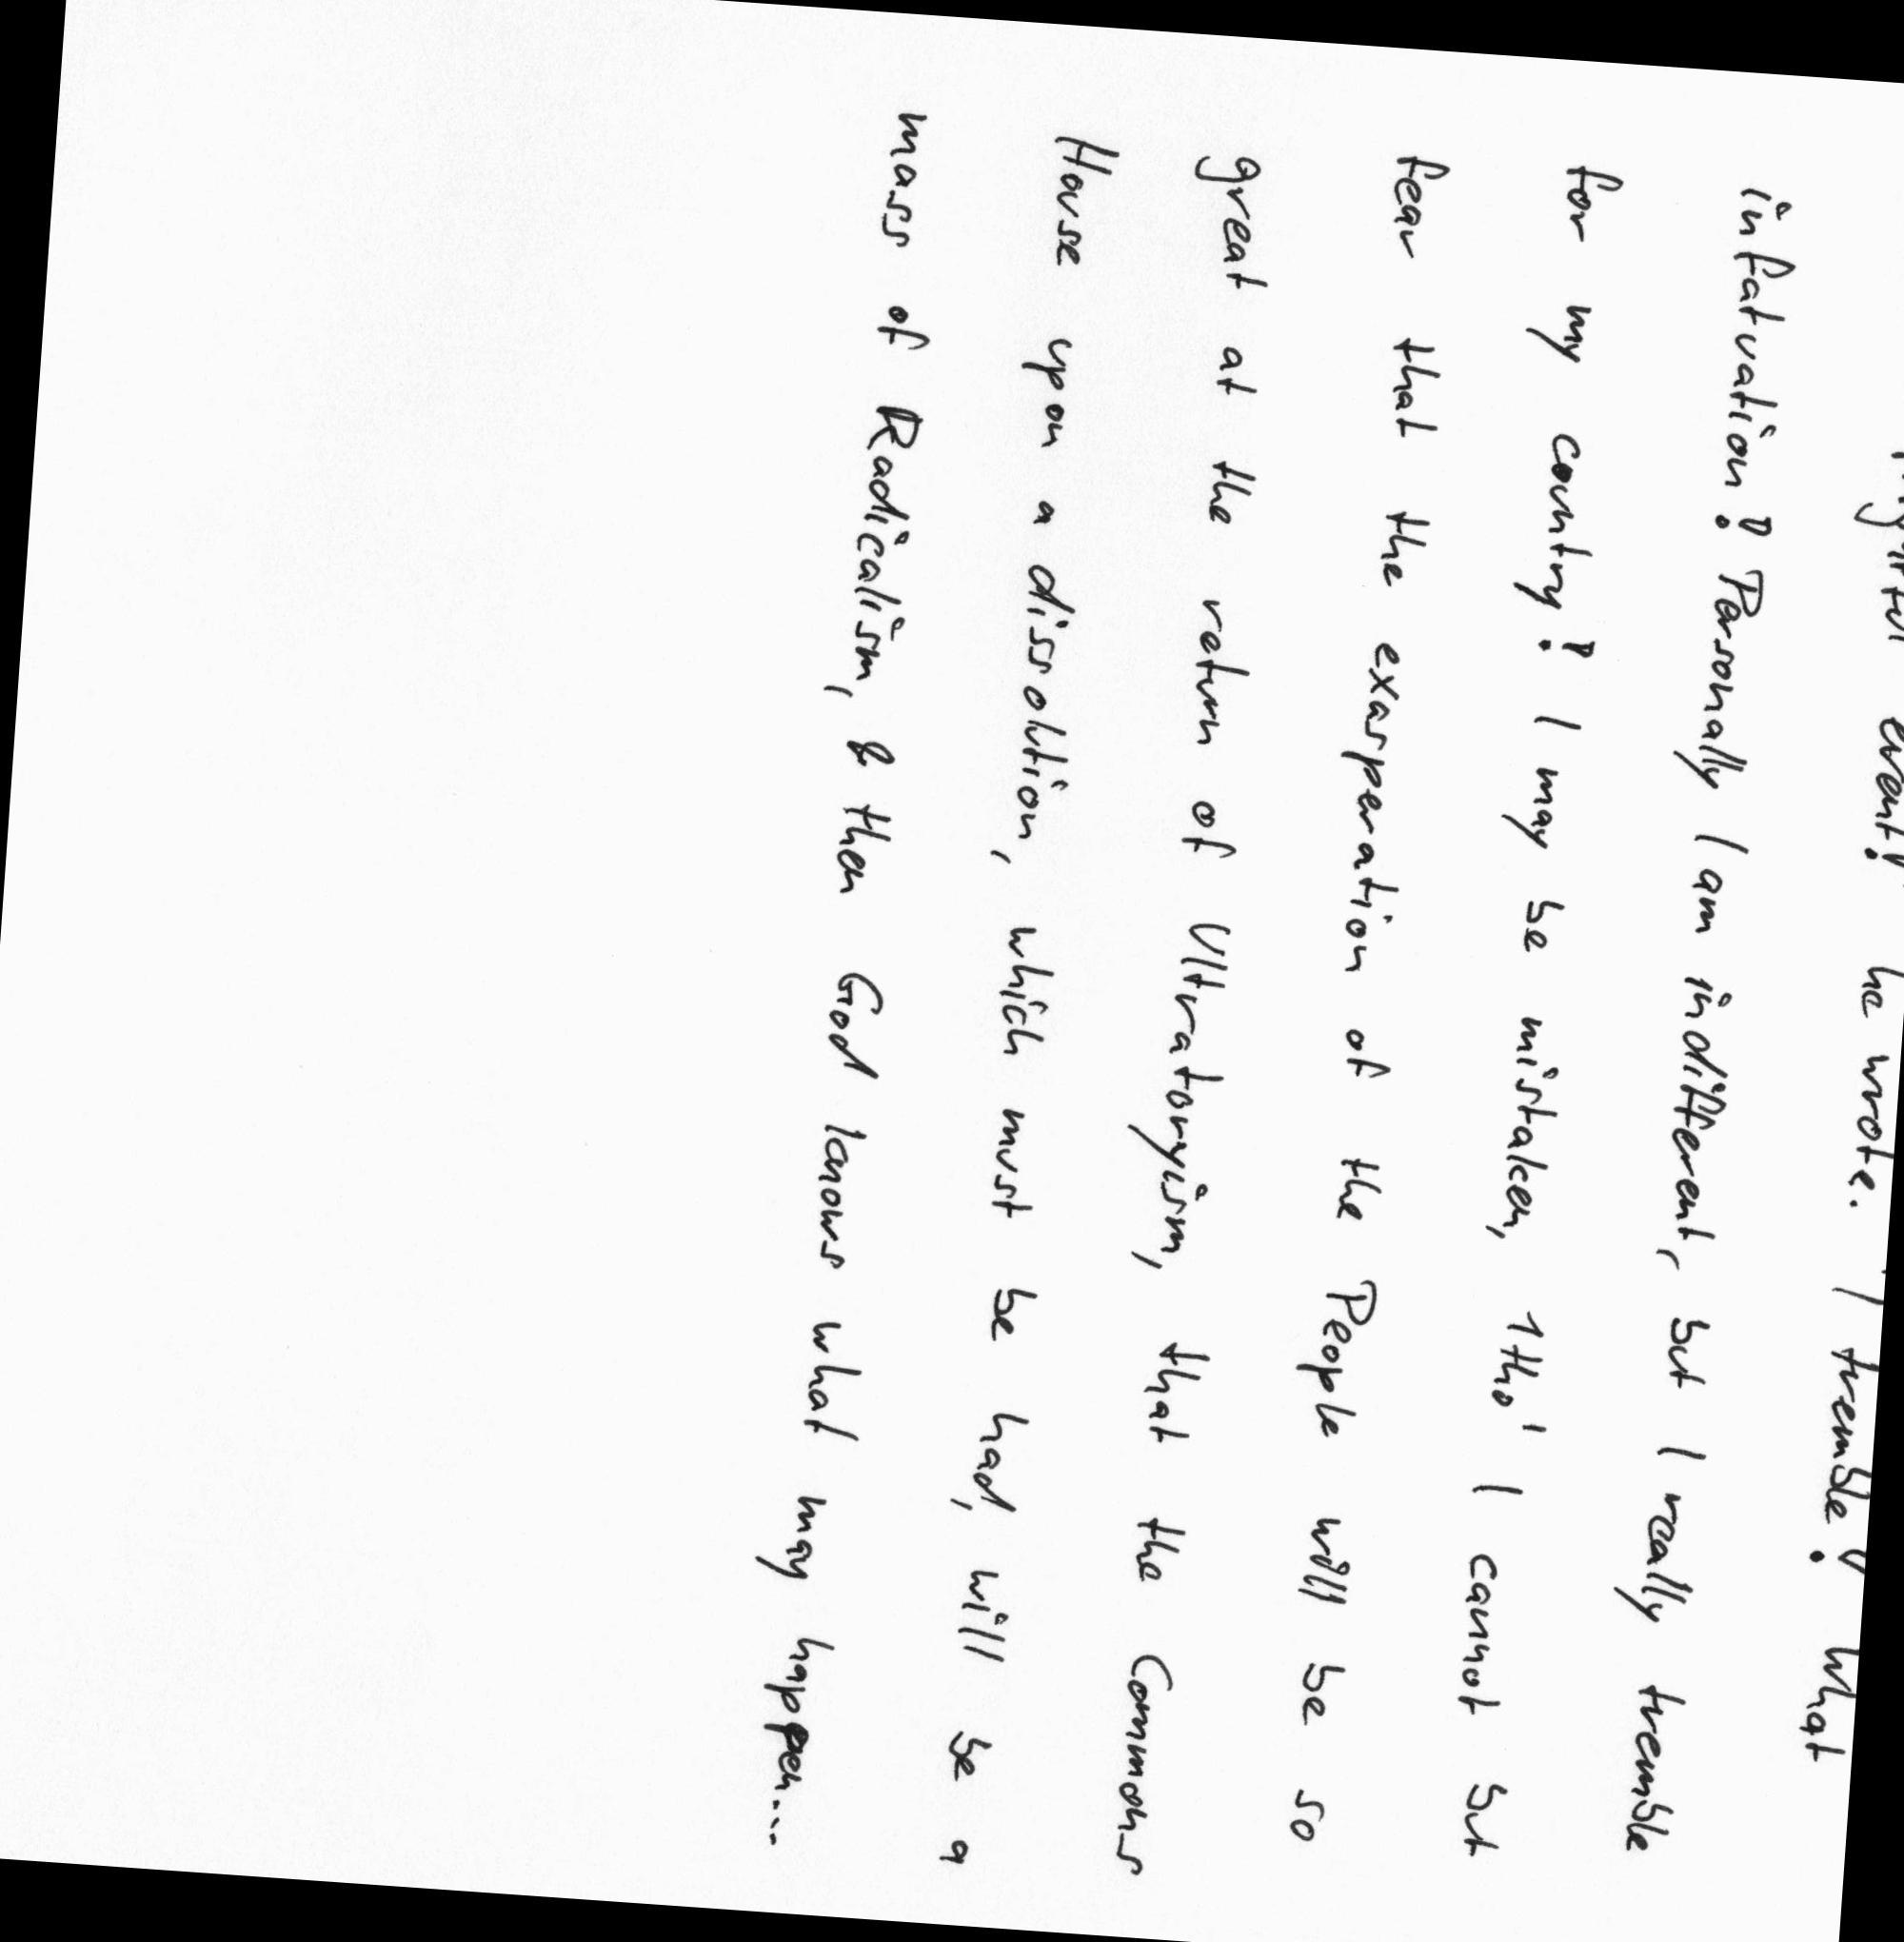 event! he wrote. 'I tremble! What
infatuation! Personally I am indifferent, but I really tremble
for my country! I may be mistaken, 'tho' I cannot but
fear that the exasperation of the People will be so
great at the return of Ultratoryism, that the Commons
House upon a dissolution, which must be had, will be a
mass of Radicalism, & then God knows what may happen...